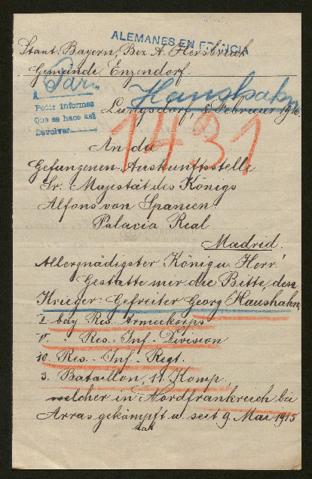 ALEMANES EN FRANCIA
Staat: Bayern, Bez. A. Hersbruck
Gemeinde Enzendorf.
Par
A
Pedir informes
Que se hace así
Devolver
Haushahn
8. Februar 1916
1431
An die
Gefangenen Auskunftsstelle
Sr. Majestät des Königs
Alfons von Spanien
Palacia Real
Madrid.
Allergnädigster König u. Herr!
Gestatte mir die Bitte, den
Krieger: Gefreiter Georg Haushahn,
I. bay. Res. Armeekorps
Res. Inf. Division
10. Res. Inf. Regt.
3. Bataillon, 11. Komp.
welcher in Nordfrankreich bei
Arras gekämpft u. seit 9. Mai 1915